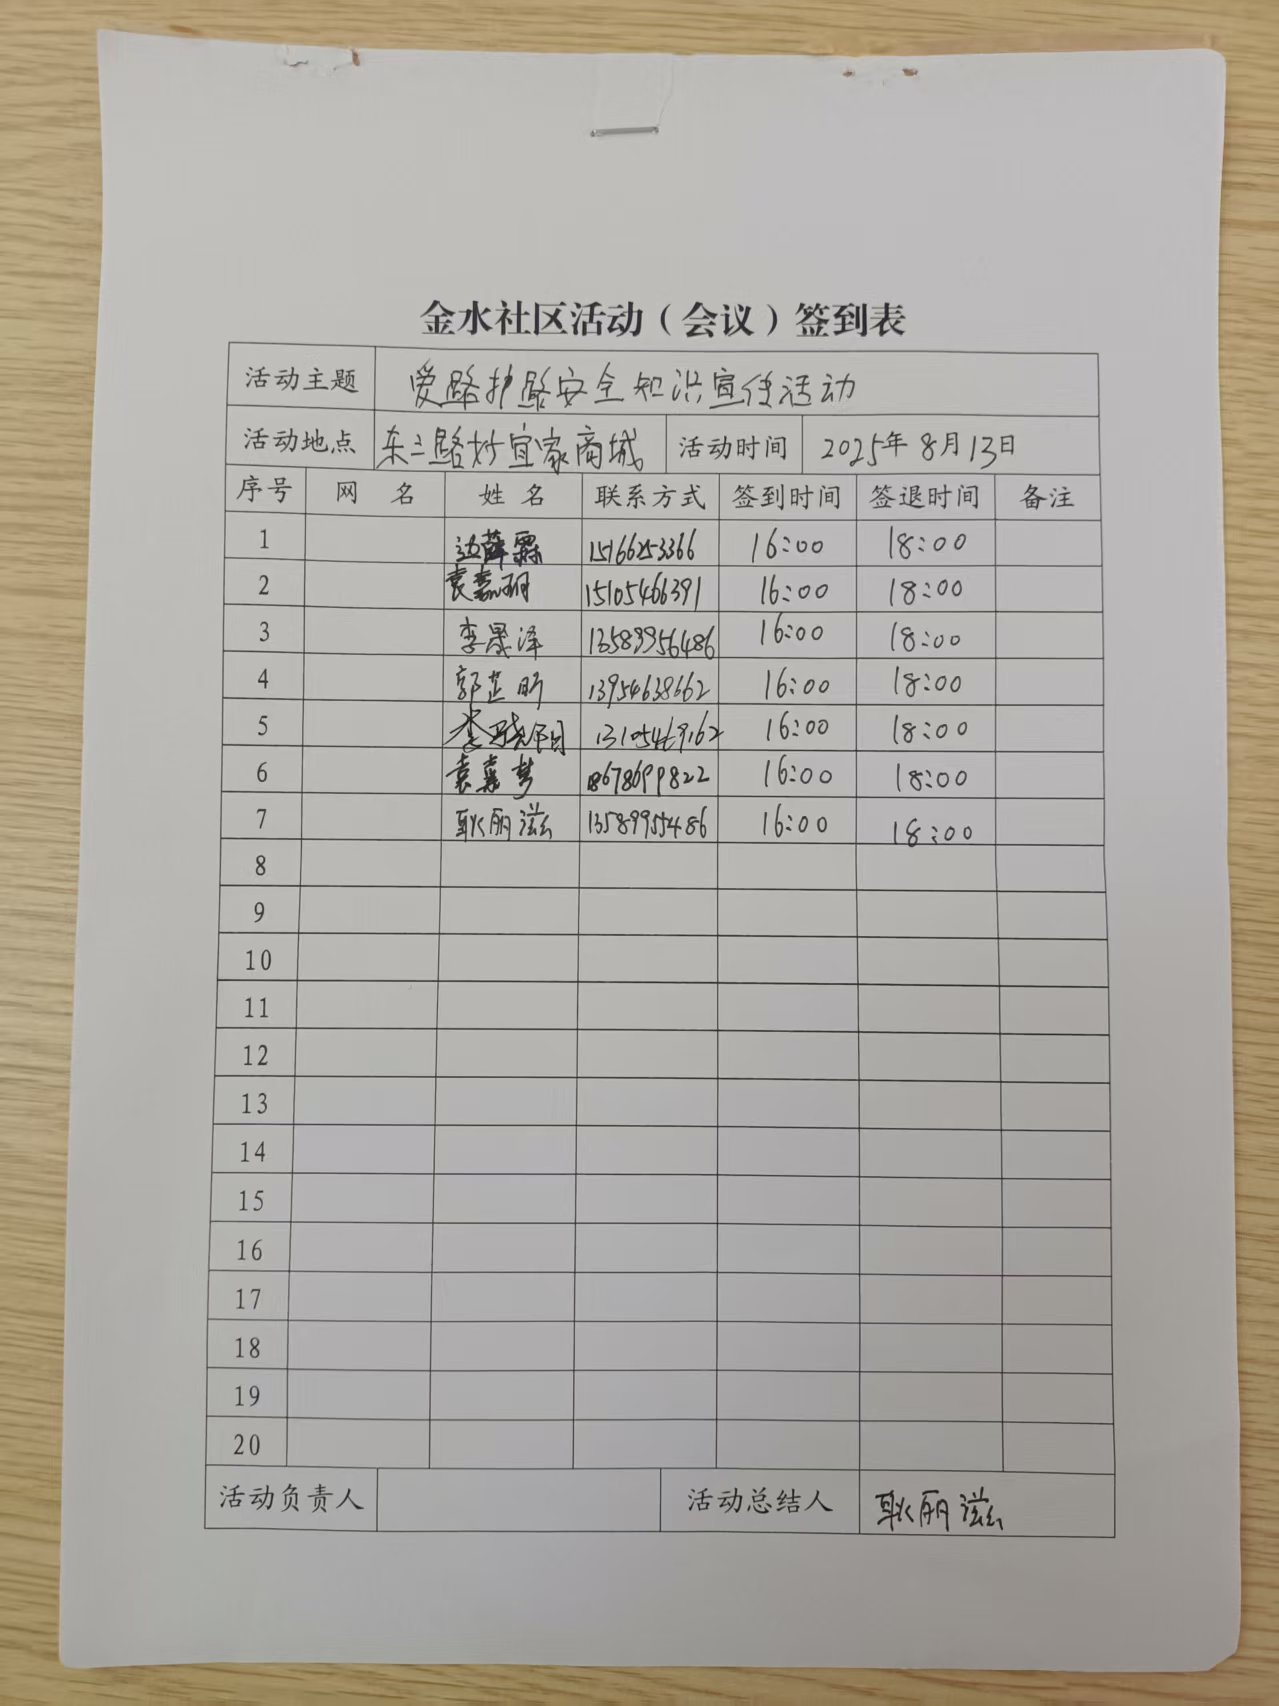 金水社区活动（会议）签到表
活动主题 爱路护路安全知识宣传活动
活动地点 东二路妙宜家商城 活动时间 2025年8月13日
序号 网 名 姓 名 联系方式 签到时间 签退时间 备注
1 边薛霖 15166253366 16:00 18:00
2 袁嘉玥 15105466391 16:00 18:00
3 李晟泽 13589956486 16:00 18:00
4 郭芷昕 13954638662 16:00 18:00
5 李 阳 13105469162 16:00 18:00
6 袁嘉梦 18678699822 16:00 18:00
7 耿丽滋 13589955486 16:00 18:00
8
9
10
11
12
13
14
15
16
17
18
19
20
活动负责人 活动总结人 耿丽滋